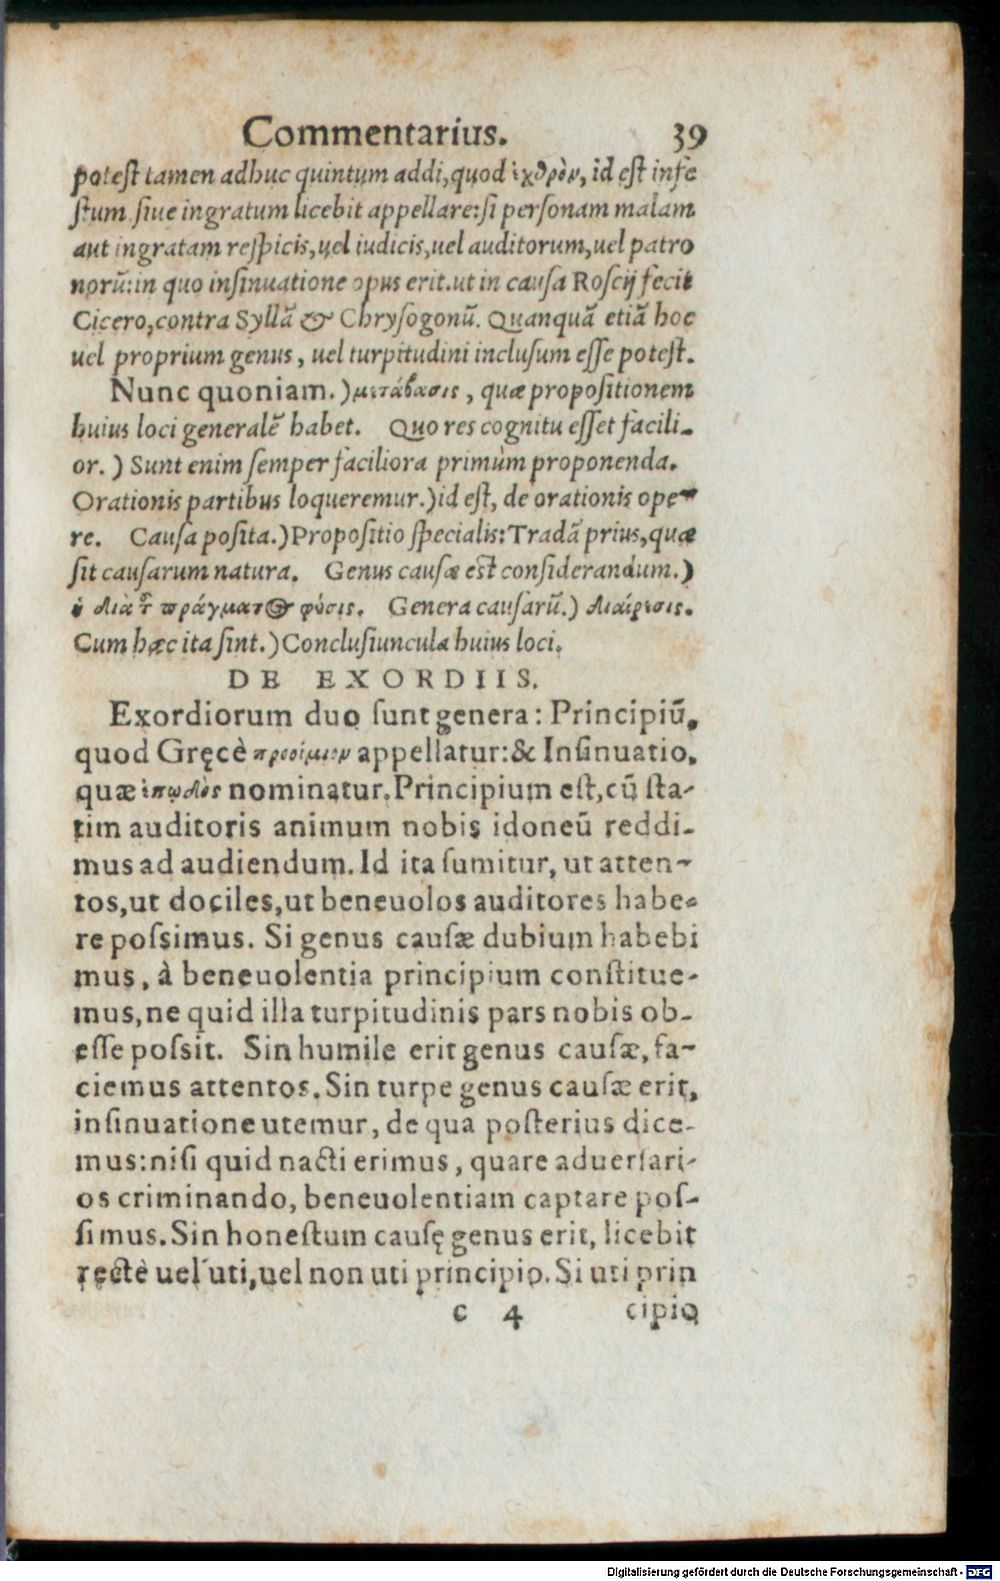 Commentarius. 39
potest tamen adhuc quintum addi, quod ἐχθρὸν, id est infe
stum siue ingratum licebit appellare: si personam malam
aut ingratam respicis, uel iudicis, uel auditorum, uel patro
norū: in quo insinuatione opus erit. ut in causa Roscij fecit
Cicero, contra Syllā & Chrysogonū. Quanquā etiā hoc
uel proprium genus, uel turpitudini inclusum esse potest.
Nunc quoniam.) μετάβασις, quæ propositionem
huius loci generalē habet. Quo res cognitu esset facili-
or.) Sunt enim semper faciliora primùm proponenda.
Orationis partibus loqueremur.) id est, de orationis ope-
re. Causa posita.) Propositio specialis: Tradā prius, quæ
sit causarum natura. Genus causæ est considerandum.)
ἡ διὰ τ̃ πράγματος φύσις. Genera causarū.) διαίρεσις.
Cum hæc ita sint.) Conclusiuncula huius loci.
DE EXORDIIS.
Exordiorum duo sunt genera: Principiū,
quod Gręcè προοίμιον appellatur: & Insinuatio,
quæ ἐπῳδὸς nominatur. Principium est, cū sta-
tim auditoris animum nobis idoneū reddi-
mus ad audiendum. Id ita sumitur, ut atten-
tos, ut dociles, ut beneuolos auditores habe-
re possimus. Si genus causæ dubium habebi
mus, à beneuolentia principium constitue-
mus, ne quid illa turpitudinis pars nobis ob-
esse possit. Sin humile erit genus causæ, fa-
ciemus attentos. Sin turpe genus causæ erit,
insinuatione utemur, de qua posterius dice-
mus: nisi quid nacti erimus, quare aduersari-
os criminando, beneuolentiam captare pos-
simus. Sin honestum causę genus erit, licebit
rectè uel uti, uel non uti principio. Si uti prin
c 4 cipio
Digitalisierung gefördert durch die Deutsche Forschungsgemeinschaft - DFG